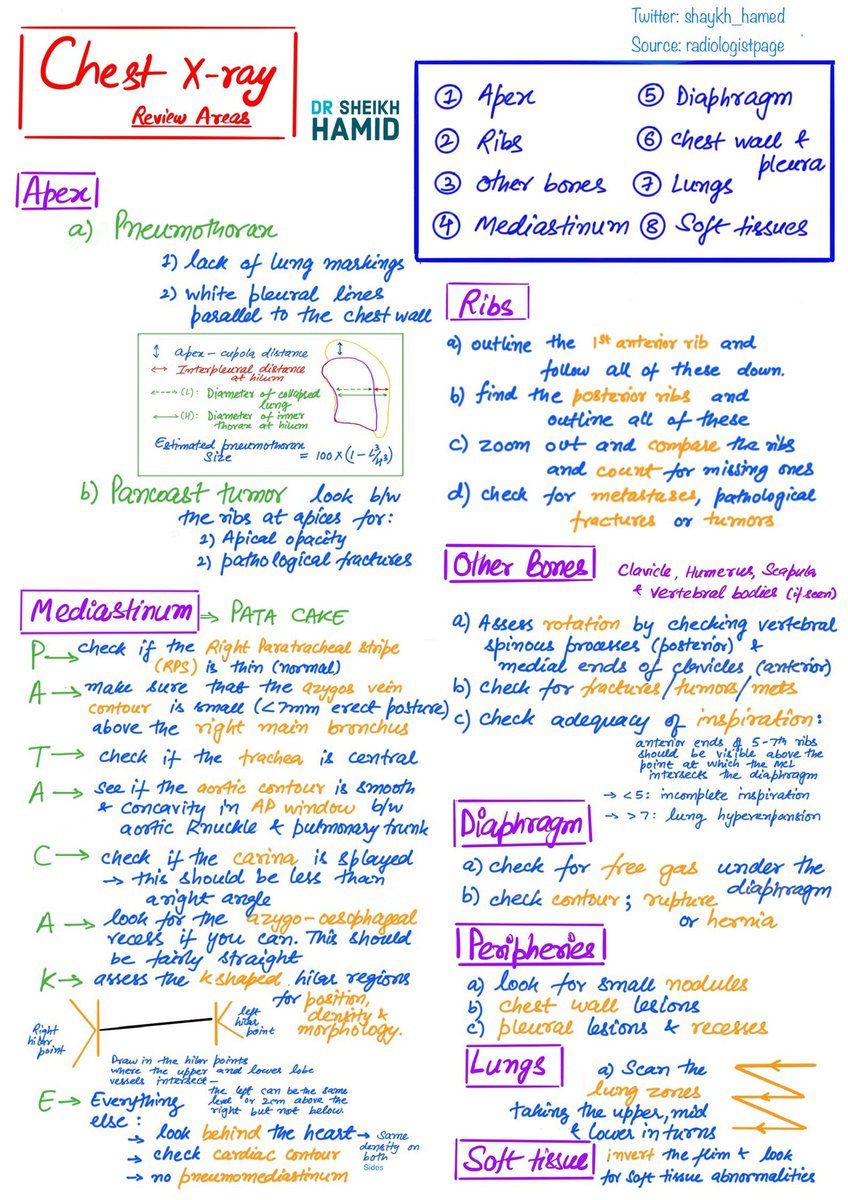 Twitter: shaykh_hamed
Source: radiologistpage
Chest X-ray
Review Areas
DR SHEIKH
HAMID
① Apex
② Ribs
③ Other bones
④ Mediastinum
⑤ Diaphragm
⑥ Chest wall &
pleura
⑦ Lungs
⑧ Soft tissues
Apex
a) Pneumothorax
1) lack of lung markings
2) white pleural lines
parallel to the chest wall
↕ apex-cupola distance
↔ Interpleural distance
at hilum
(L): Diameter of collapsed
lung
(H): Diameter of inner
thorax at hilum
Estimated pneumothorax
Size = 100 × (1 - L³/H³)
b) Pancoast tumor look b/w
the ribs at apices for:
1) Apical opacity
2) pathological fractures
Mediastinum ⇒ PATA CAKE
P → check if the Right Paratracheal stripe
(RPS) is thin (normal)
A → make sure that the azygos vein
contour is small (<7mm erect posture)
above the right main bronchus
T → check if the trachea is central
A → see if the aortic contour is smooth
& concavity in AP window b/w
aortic knuckle & pulmonary trunk
C → check if the carina is splayed
→ this should be less than
a right angle
A → look for the azygo-oesophageal
recess if you can. This should
be fairly straight
K → assess the k shaped hilar regions
for position,
density &
morphology.
Right
hiler
point
left
hiler
point
Draw in the hiler points
where the upper and lower lobe
vessels intersect –
the left can be the same
level or 2cm above the
right but not below.
E → Everything
else:
→ look behind the heart → Same
density on
both
Sides
→ check cardiac contour
→ no pneumomediastinum
Ribs
a) outline the 1st anterior rib and
follow all of these down.
b) find the posterior ribs and
outline all of these
c) zoom out and compare the ribs
and count for missing ones
d) check for metastases, pathological
fractures or tumors
Other Bones
Clavicle, Humerus, Scapula
& vertebral bodies (if seen)
a) Assess rotation by checking vertebral
spinous processes (posterior) &
medial ends of clavicles (anterior)
b) check for fractures/tumors/mets
c) check adequacy of inspiration:
anterior ends of 5-7th ribs
should be visible above the
point at which the MCL
intersects the diaphragm
→ <5: incomplete inspiration
→ >7: lung hyperexpansion
Diaphragm
a) check for free gas under the
diaphragm
b) check contour; rupture
or hernia
Peripheries
a) look for small nodules
b) chest wall lesions
c) pleural lesions & recesses
Lungs
a) Scan the
lung zones
taking the upper, mid
& lower in turns
Soft tissue
invert the flim & look
for soft tissue abnormalities